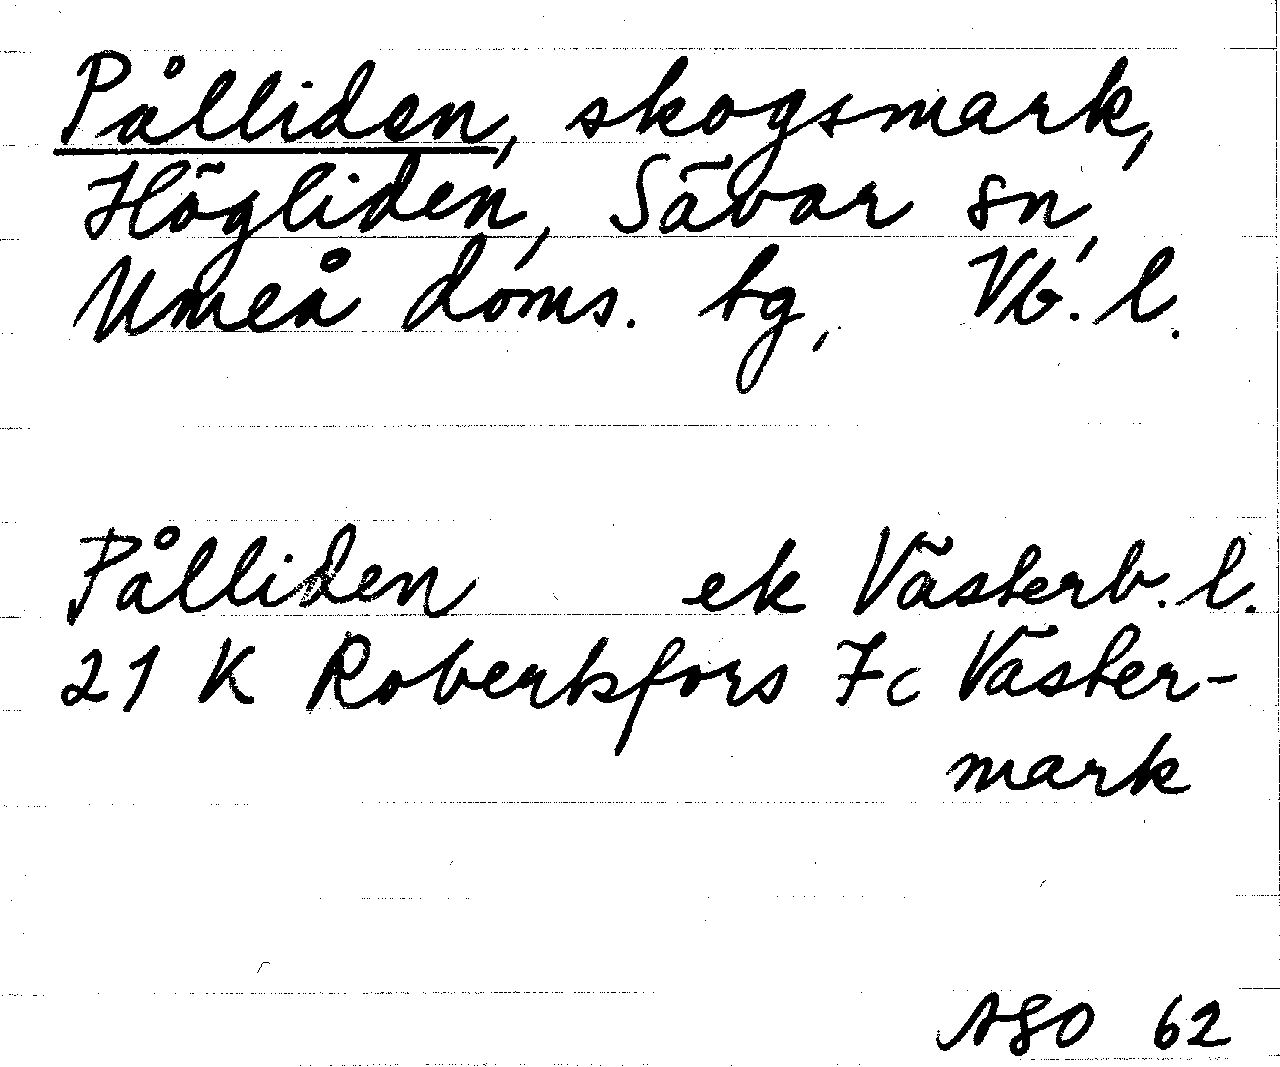 Pålliden, skogsmark,
Högliden, Sävar sn,
Umeå doms. tg, Vb. l.
Pålliden ek Västerb. l.
21 K Robertsfors 7c Väster-
mark
ASO 62